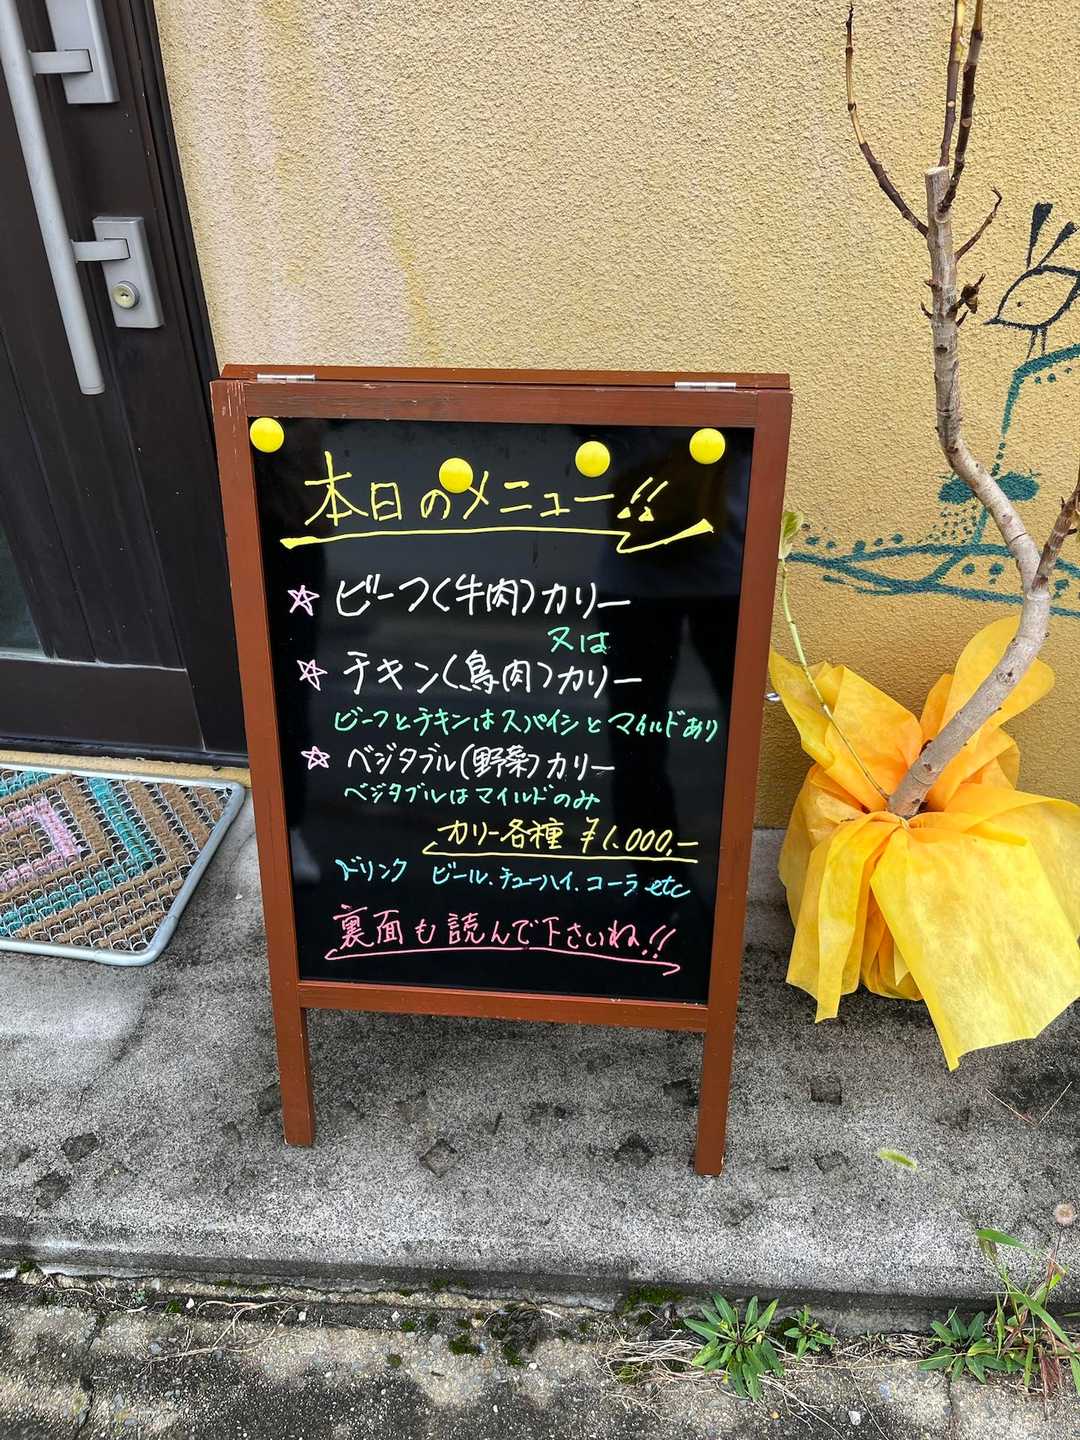 本日のメニュー!!
☆ ビーフ(牛肉)カリー
又は
☆ チキン(鳥肉)カリー
ビーフとチキンはスパイシとマイルドあり
☆ ベジタブル(野菜)カリー
ベジタブルはマイルドのみ
カリー各種 ¥1.000,ー
ドリンク ビール、チューハイ、コーラ etc
裏面も読んで下さいね!!